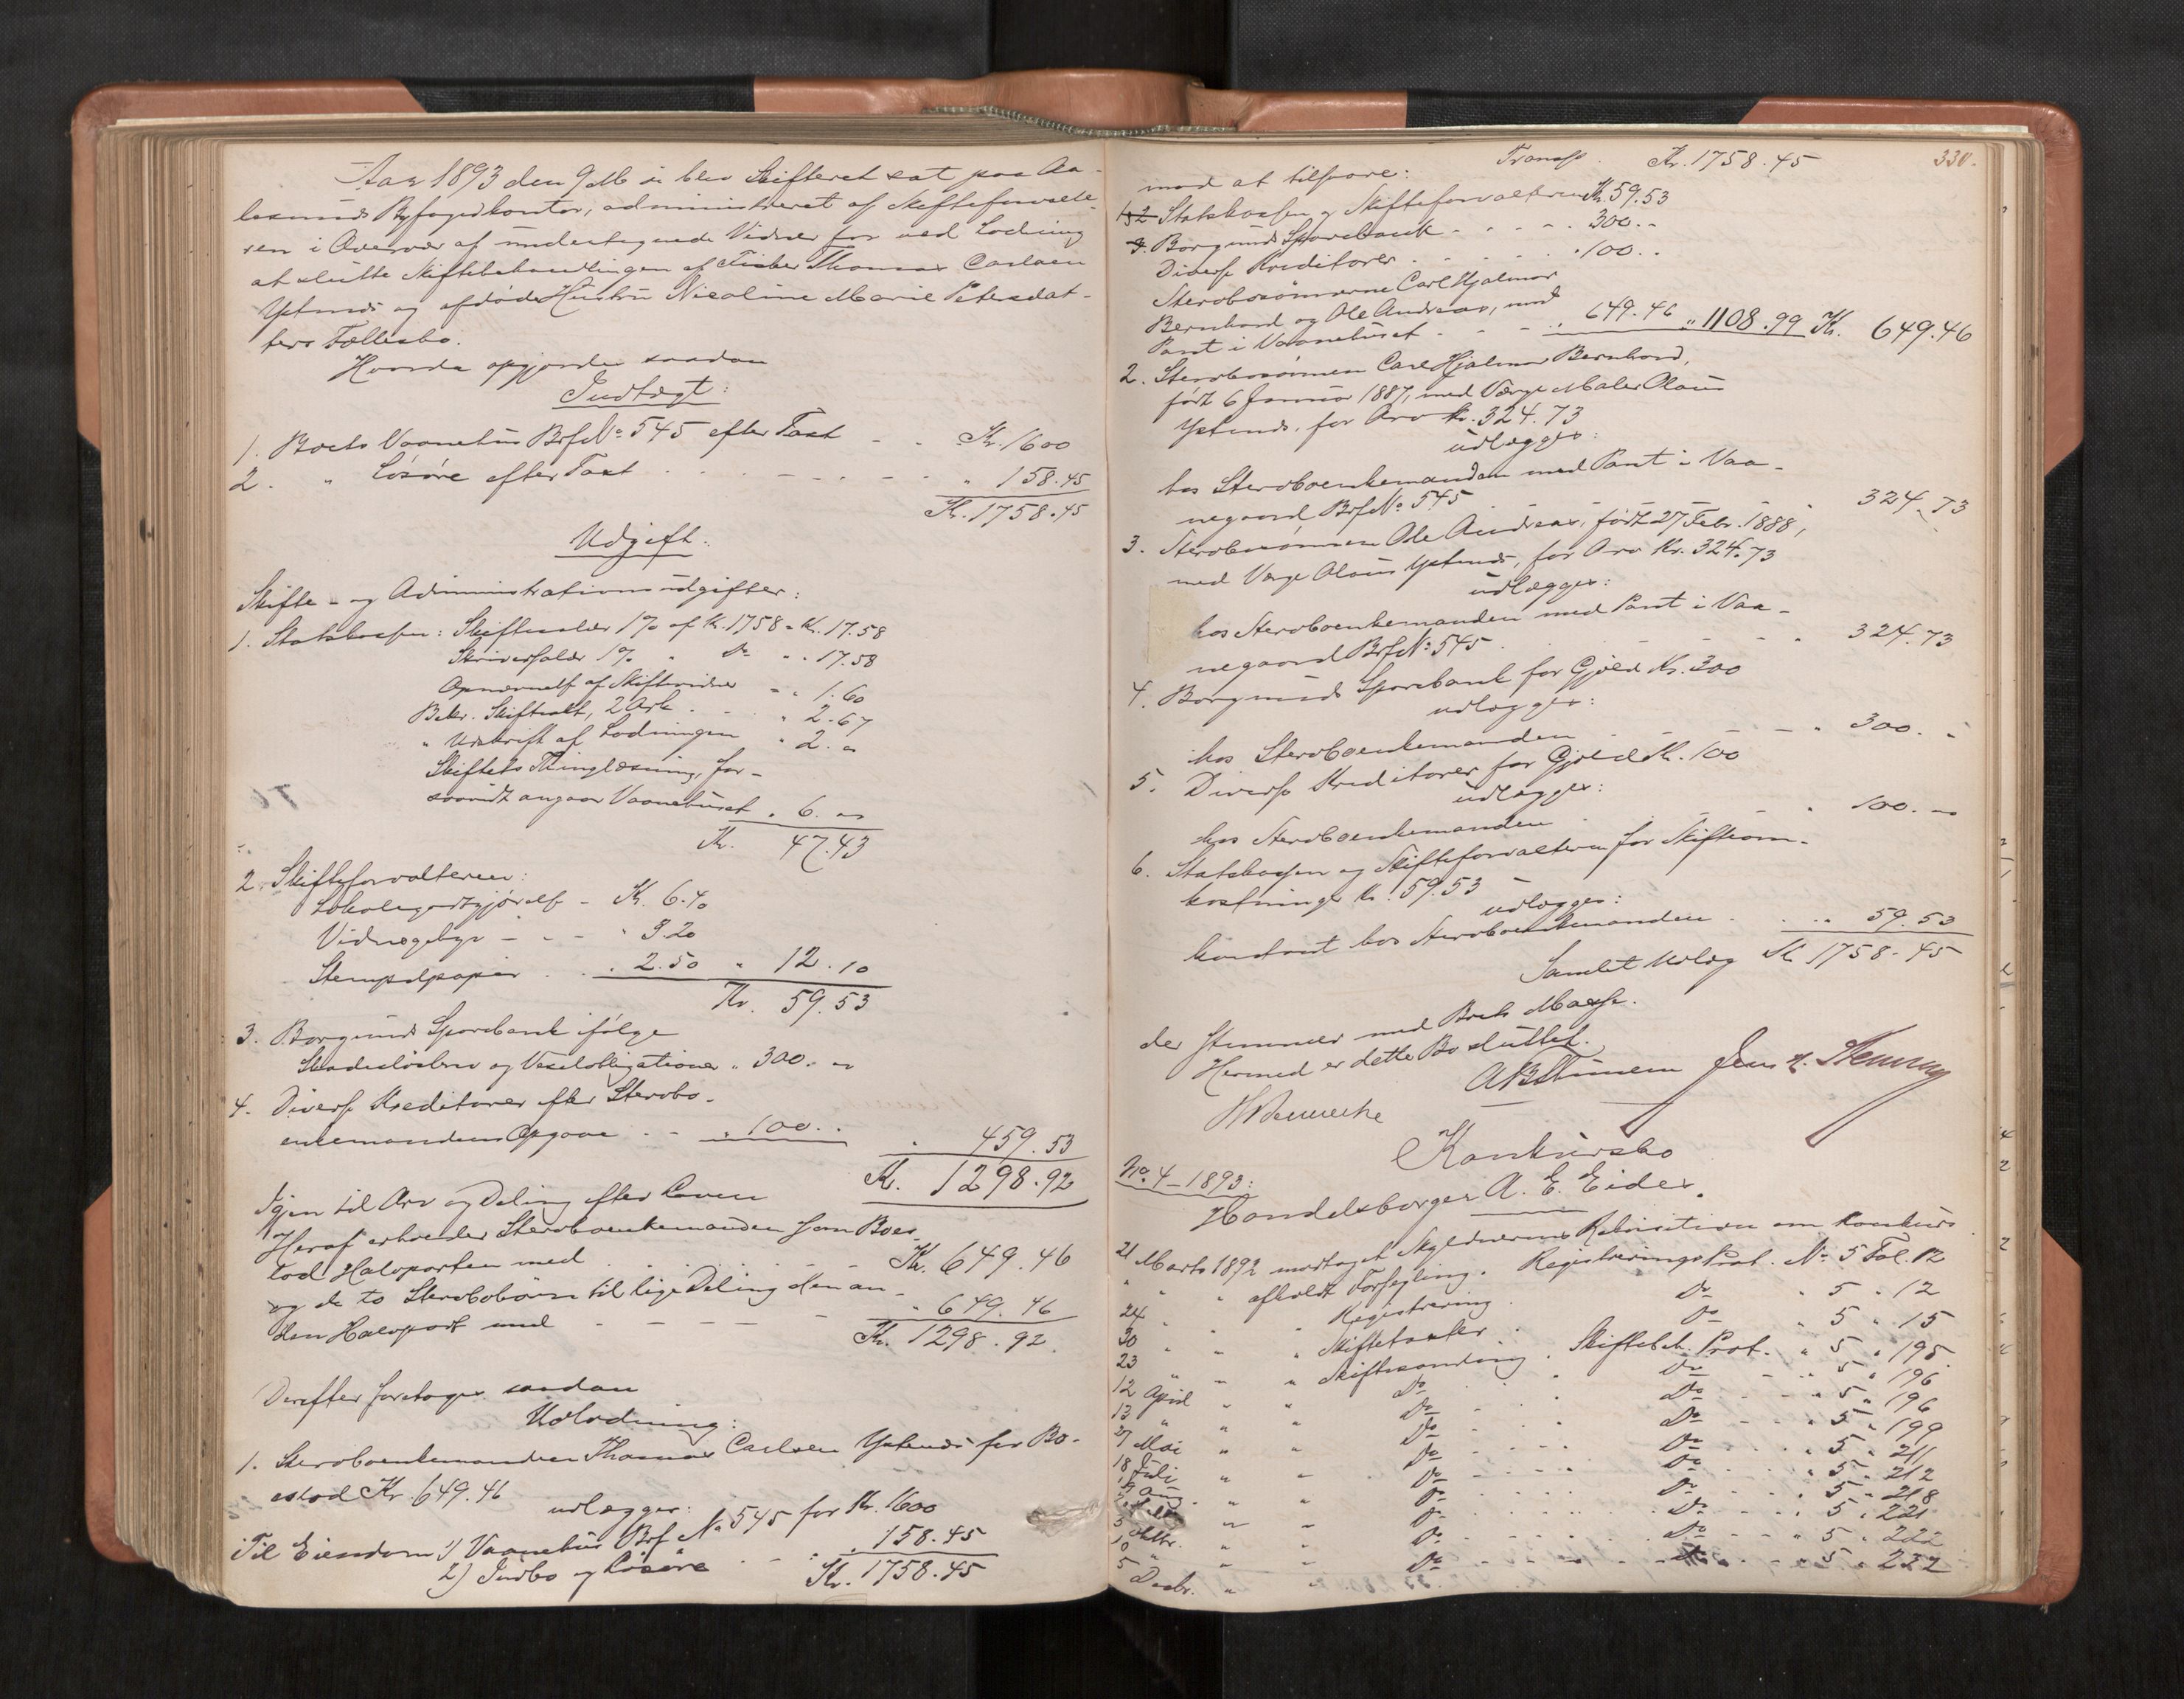 Aar 1893 den 9 blev Skifteret sat paa Aa-
lesunds Byfogedkontor, administreret af Skifteforvalte-
ren i Overvær af undertegnede Vidner for ved Lodning
at slutte Skiftebehandlingen af Fisker Thomas Carlsen
Ystenes og afdøde Hustru Nicoline Marie Petersdat-
ters Fællesbo.
Hvorda opgjordes saadan
Indtægt:
1. Boets Vaanehus Brf. No 545 efter Taxt - - Kr. 1600
2. " Løsøre efter Taxt - - - " 158.45
Kr. 1758.45
Udgift:
Skifte- og Administrationsudgifter:
1. Statskassen: Skiftesalær 1% af Kr. 1758 = Kr. 17.58
Skriversalær 1% " Do " 17.58
Opnævnelse af Skiftevidner - " 1.60
Bekr. Skifteakt, 2 Ark - " 2.67
" Udskrift af Lodningen " 2. "
Skiftets Thinglæsning, for-
saavidt angaar Vaanehuset " 6. "
Kr. 47.43
2. Skifteforvalteren:
Lokalegodtgjørelse - Kr. 6.40
Vidnegebyr - - - " 3.20
Stempelpapir . . " 2.50 " 12.10
Kr. 59.53
3. Borgunds Sparebank ifølge
Skadesløsbrev og Vexelobligationer " 300. "
4. Diverse Kreditorer efter Stervbo-
enkemandens Opgave - - " 100. . " 459.53
Igjen til Arv og Deling efter Loven Kr. 1298.92
Heraf erholder Stervboenkemanden som Boes-
lod Halvparten med . . . Kr. 649.46
og de to Stervbobørn til lige Deling den an-
den Halvpart med - - - - " 649.46
Kr. 1298.92.
Derefter foretoges saadan
Udlodning:
1. Stervboenkemanden Thomas Carlsen Ystenes for Bo-
eslod Kr. 649.46
udlægges:
Til Eiendom 1) Vaanehus Brf No 545 for Kr. 1600
2) Indbo og Løsøre - - " 158.45
Kr. 1758.45
330.
Transp. Kr. 1758.45
mod at tilsvare:
Statskassen og Skifteforvalteren Kr. 59.53
Borgunds Sparebank - - - - 300. -
Diverse Kreditorer . . . . 100. .
Stervbosønnerne Carl Hjalmar
Bernhard og Ole Andreas, mod
Pant i Vaanehuset - - - " 649.46 " 1108.99 Kr. 649.46
2. Stervbosønnen Carl Hjalmar Bernhard,
født 6 Januar 1887, med Værge Maler Olaus
Ystenes, for Arv Kr. 324.73
udlægges:
hos Stervboenkemanden med Pant i Vaa-
negaard Brf No 545 - - - 324.73
3. Stervbosønnen Ole Andreas, født 27 Febr. 1888,
med Værge Olaus Ystenes, for Arv Kr. 324.73
udlægges:
hos Stervboenkemanden med Pant i Vaa-
negaard Brf No 545 . - - - 324.73
4. Borgunds Sparebank for Gjæld Kr. 300
udlægges:
hos Stervboenkemanden - - - " 300. "
5. Diverse Kreditorer for Gjæld Kr. 100
udlægges:
hos Stervboenkemanden . . . " 100. -
6. Statskassen og Skifteforvalteren for Skifteom-
kostninger Kr. 59.53
udlægges:
kontant hos Stervboenkemanden . . . " 59.53
Samlet Udlæg Kr 1758.45
der stemmer med Boets Masse.
Hermed er dette Bo sluttet.
Konkursbo
No. 4 - 1893:
Handelsborger A. E. Eides.
21 Marts 1892 modtaget Skyldnerens Rekvisition om Konkurs
" " " afholdt Forsegling. Registreringsprot. No 5 Fol. 12
24 " " " Registrering . Do " 5 " 12
30 " " " Skiftetaxter . Do " 5 " 15
23 " " " Skiftesamling . Skiftebeh. Prot. " 5 " 195
12 April " " Do . . Do - " 5 " 196
13 " " " Do . . Do - " 5 " 196
27 Mai " " Do . . Do - " 5 " 199
18 Juli " " Do . . Do - " 5 " 211
Aug. " " Do . . Do - " 5 " 212
" " Do . . Do - " 5 " 218
Oktbr. " " Do . . Do - " 5 " 221
10 " " " Do . . Do - " 5 " 222
5 Decbr. " " Do . . - " 5 " 222